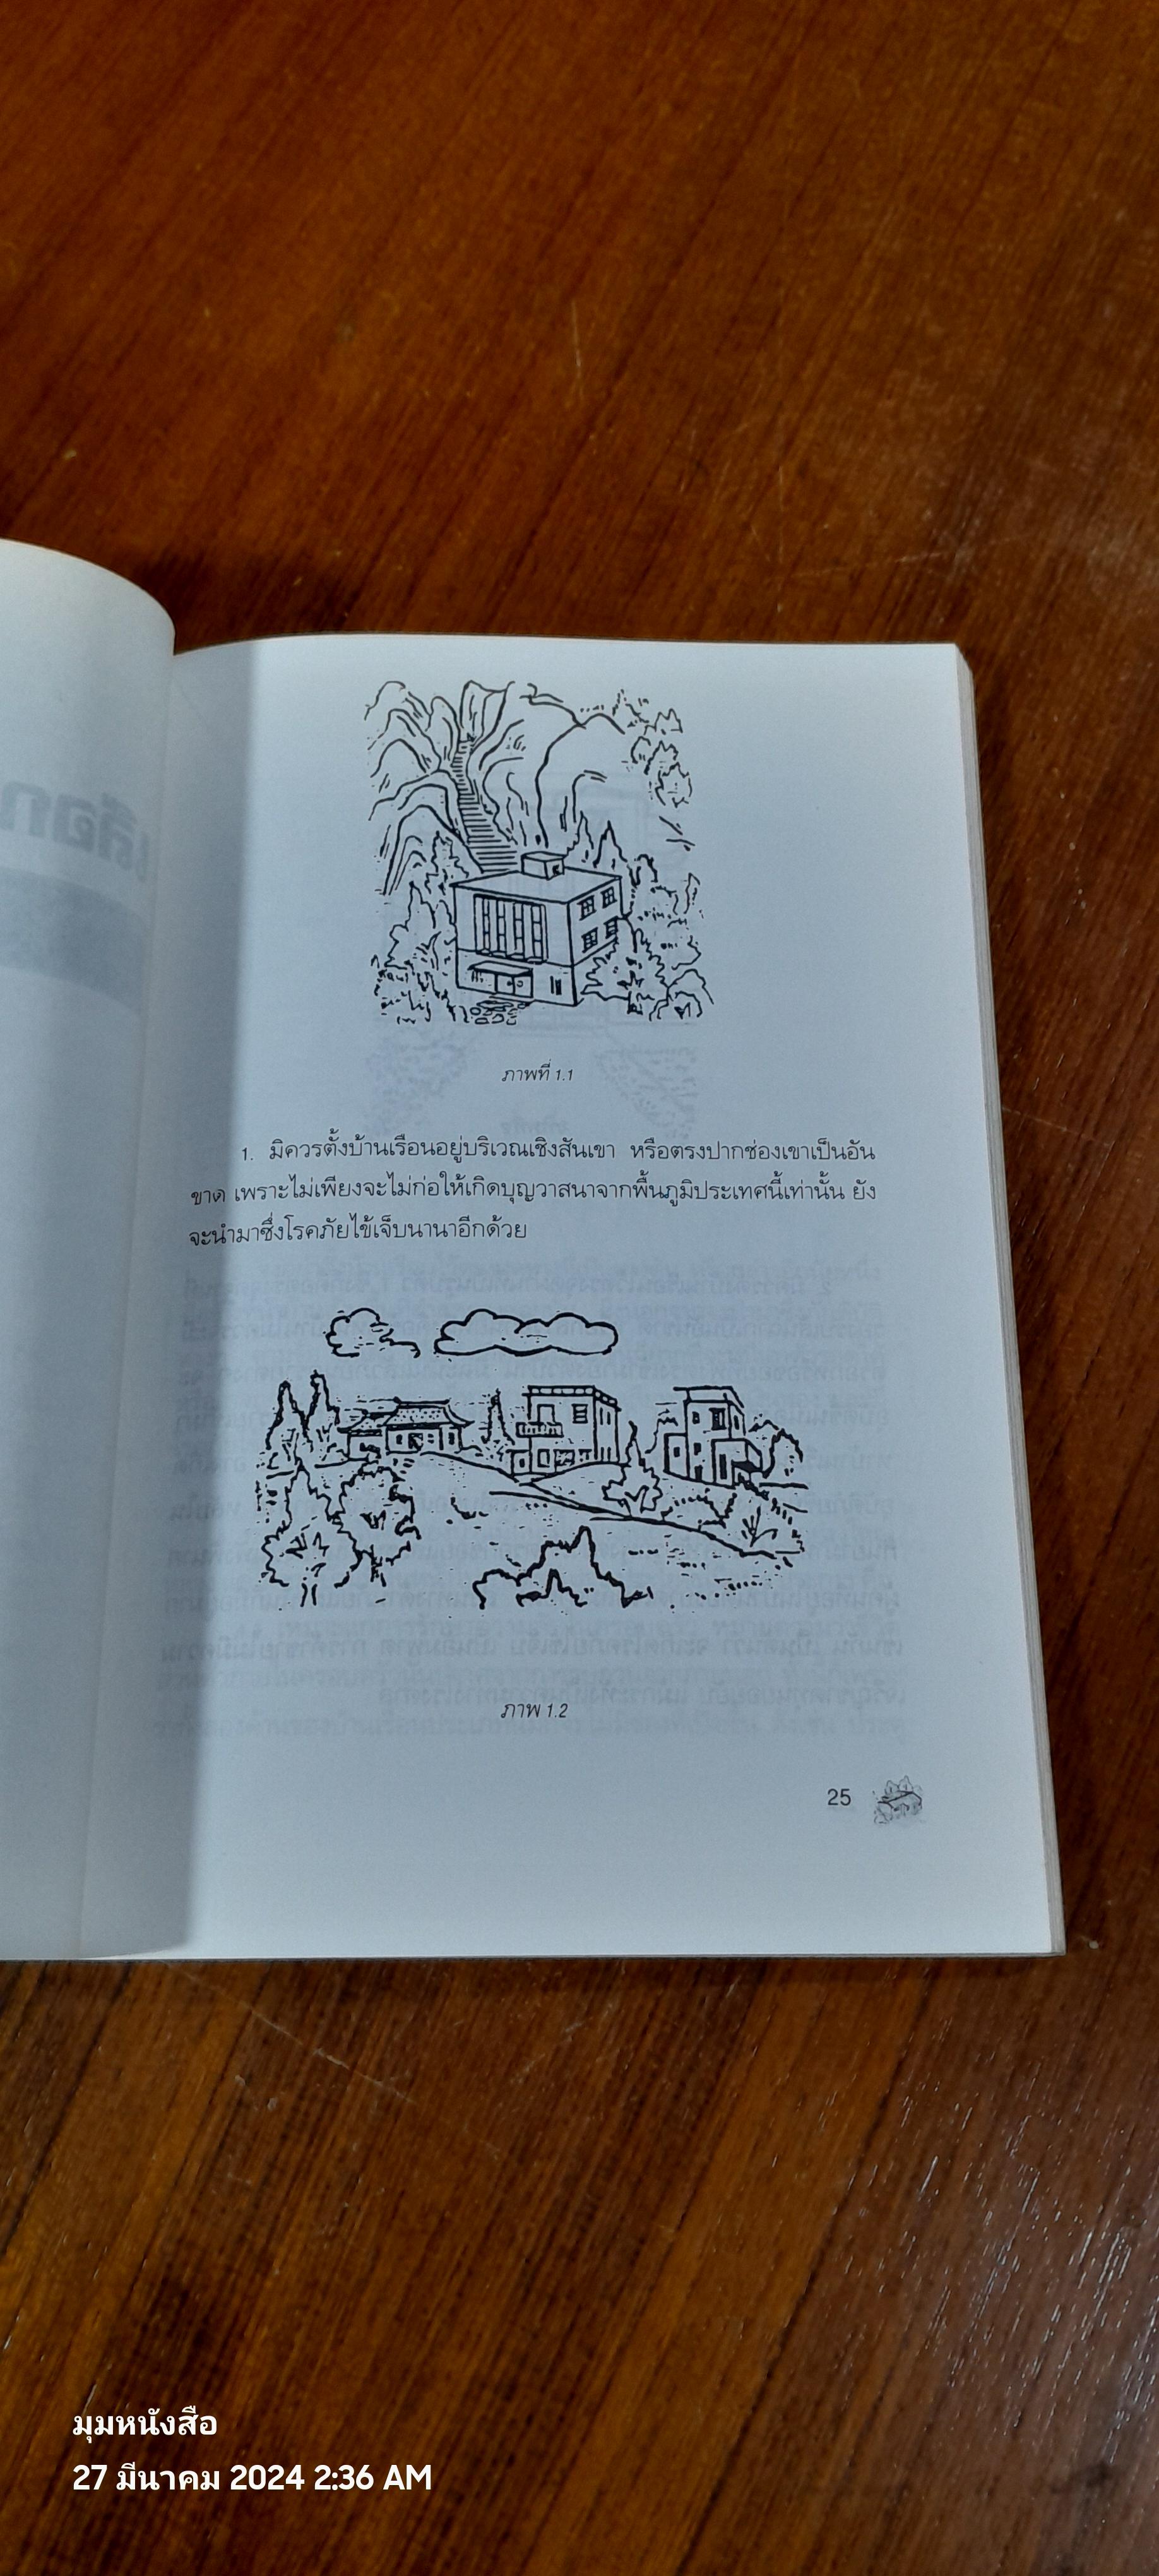 ภาพที่ 1.1
1. มิควรตั้งบ้านเรือนอยู่บริเวณเชิงสันเขา หรือตรงปากช่องเขาเป็นอัน
ขาด เพราะไม่เพียงจะไม่ก่อให้เกิดบุญวาสนาจากพื้นภูมิประเทศนี้เท่านั้น ยัง
จะนำมาซึ่งโรคภัยไข้เจ็บนานาอีกด้วย
ภาพ 1.2
25
มุมหนังสือ
27 มีนาคม 2024 2:36 AM